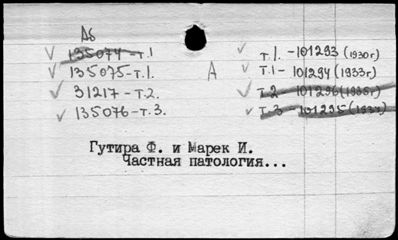 Аб
135074-т.1
135075-т.1.
31217-т.2.
135076-т.3.
А
т.1.-101293 (1930г)
т.1-101294 (1933г.)
т.2-101296 (1935г)
т.3-101295 (193 г)
Гутира Ф. и Марек И.
Частная патология...